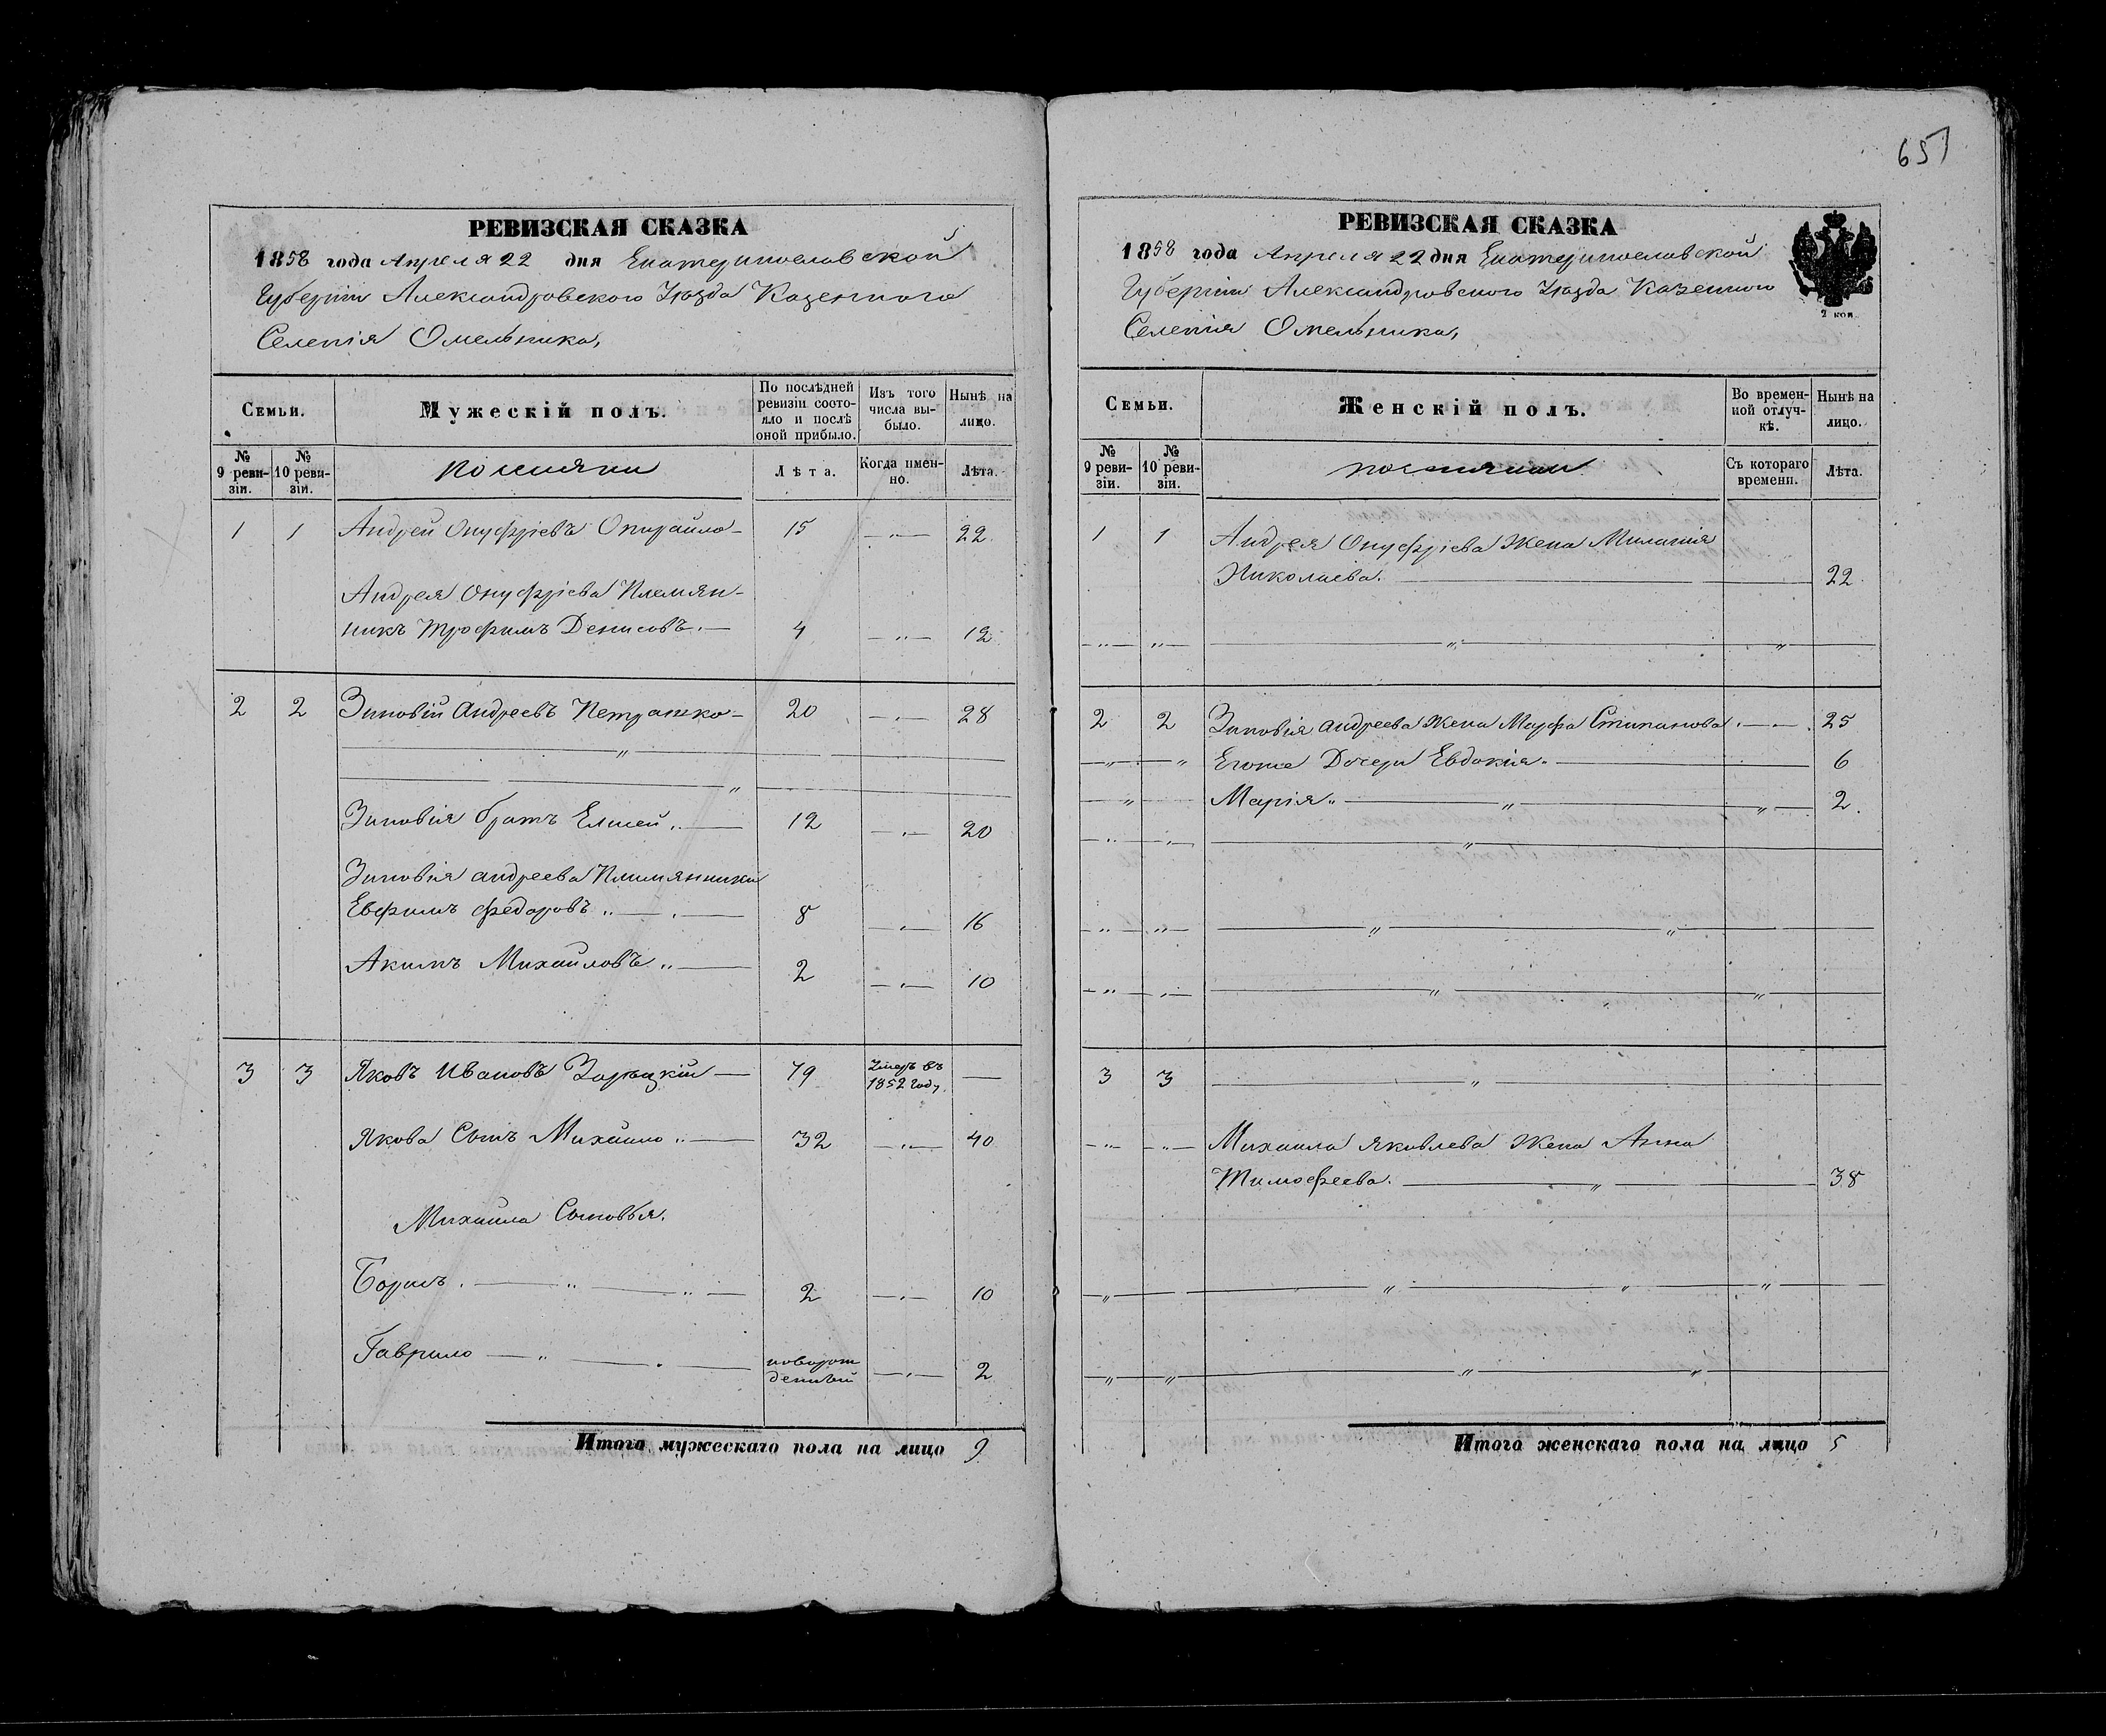 651
РЕВИЗСКАЯ СКАЗКА
1858 года Апреля 22 дня Екатеринославской
Губерніи Александровского Уѣзда Казенного
Селенія Омельника,
Семьи.
Мужескій полъ.
По послѣдней ревизіи состояло и послѣ оной прибыло.
Изъ того числа выбыло.
Нынѣ на лицо.
№ 9 ревизіи.
№ 10 ревизіи.
поселяни
Лѣта.
Когда именно.
Лѣта.
1 1 Андрей Онуфріевъ 15 — „ — 22
Андрея Онуфріева Племян-
никъ Трофимъ Денисовъ. — 4 — „ — 12
2 2 Зиновій Андреевъ Петрашко — 20 — „ — 28
Зиновія братъ Елисей „ — 12 — „ — 20
Зиновія андреева Плимянники
Евфимъ федоровъ „ — 8 — „ — 16
Акимъ Михайловъ „ — 2 — „ — 10
3 3 Яковъ Ивановъ Зарыцкій — 79 Умеръ въ 1852 году. —
Якова Сынъ Михайло „ — 32 — „ — 40
Михайла Сыновья.
Борисъ. — „ — 2 — „ — 10
Гаврило — „ — новорожденный — „ — 2
Итого мужескаго пола на лицо 9
РЕВИЗСКАЯ СКАЗКА
1858 года Апреля 22 дня Екатеринославской
Губерніи Александровского Уѣзда Казенного
Селенія Омельника,
2 коп.
Семьи.
Женскій полъ.
Во временной отлучкѣ.
Нынѣ на лицо.
№ 9 ревизіи.
№ 10 ревизіи.
Съ котораго времени.
Лѣта.
1 1 Андрея Онуфріева Жена Миланія
Николаева. — 22
2 2 Зиновія андреева Жена Марфа Стипанова. — 25
Егоже Дочери Евдокія. — 6
Марія „ — „ — 2.
3 3 — „ —
Михаила Яковлева Жена Анна
Тимофеева. — „ — 38
Итого женскаго пола на лицо 5